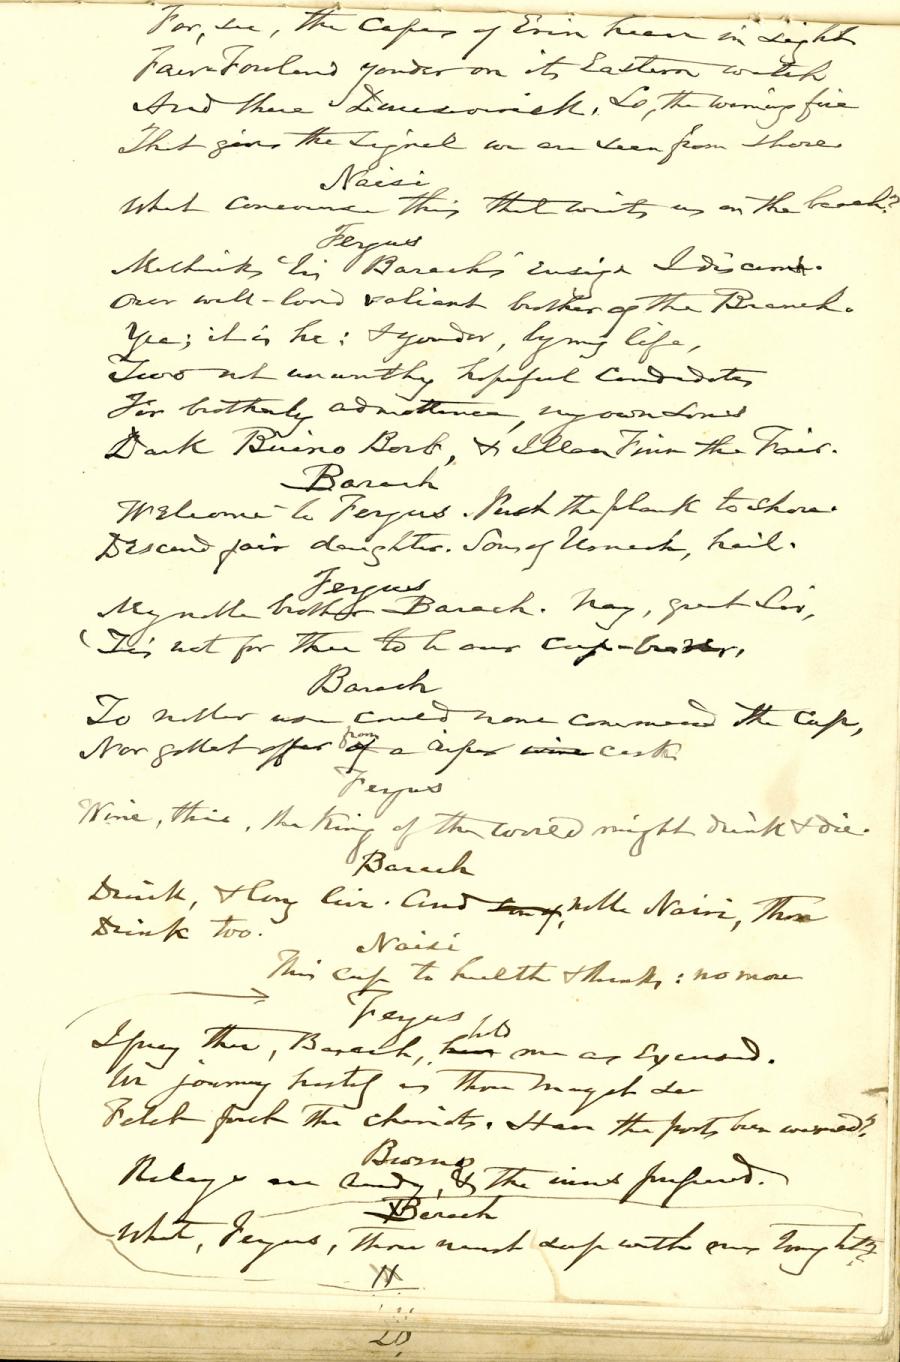 For, see, the capes of Erin heave in sight
Fair Foreland yonder on its Eastern watch
And there Dunseverick. Lo, the warning fire
That gives the signal we are seen from shore.
Naisi
What concourse this that waits us on the beach?
Fergus
Methinks 'tis Barach's ensign I discern.
Our well-loved valiant brother of the Branch.
Yea; it is he: & yonder, by my life,
Two not unworthy hopeful candidates
For brotherly admittance, my own sons
Dark Buino Borb, & Illan Finn the Fair.
Barach
Welcome to Fergus. Push the plank to shore.
Descend fair daughter. Sons of Usnach, hail.
Fergus
My noble brother Barach. Nay, great Sir,
'Tis not for thee to be our cup-bearer.
Barach
To nobler use could none commend the cup,
Nor goblet offer from of a riper wine cask
Fergus
Wine, this, the King of the world might drink & die.
Barach
Drink, & long live. And son of, noble Naisi, thou
Drink too.
Naisi
This cup to health & thanks: no more
Fergus
I pray thee, Barach, have hold me as excused.
We journey hastily as thou mayest see
Fetch forth the chariots. Have the posts been warned?
Buino
Relays are ready, & the inns prepared.
Barach
What, Fergus, thou must sup with me tonight?
N
20